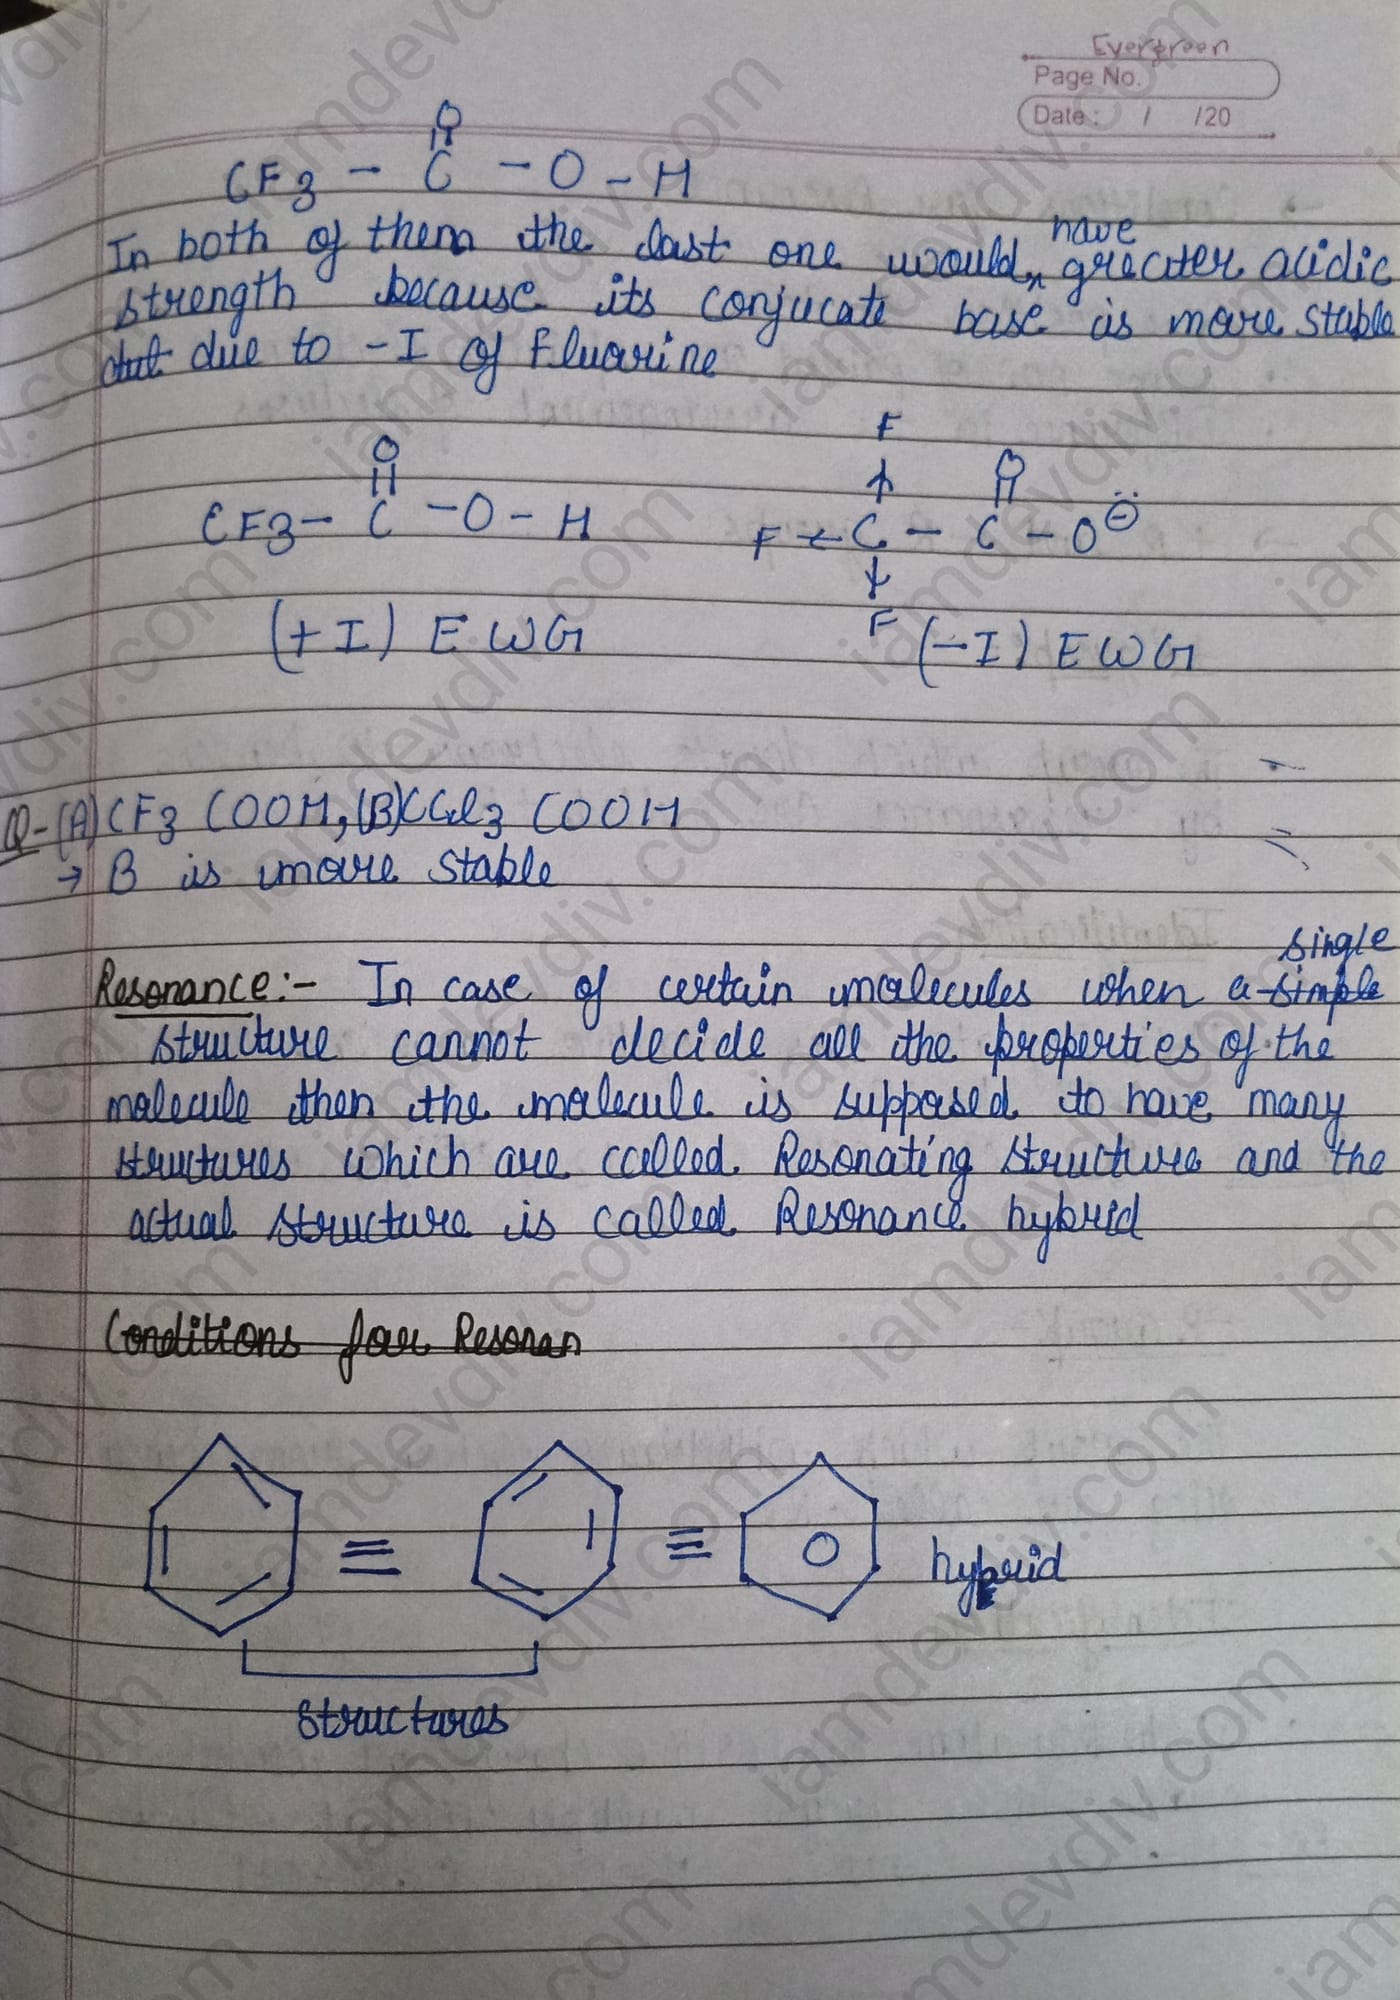 Evergreen
Page No.
Date: / /20
O
CF3 - C - O - H
In both of them the last one would have greater acidic
strength because its conjucate base is more stable
due to -I of Fluorine
O
CF3 - C - O - H
F
O
F C - C - O ⊖
F
(+I) EWG
(-I) EWG
Q- (A) CF3 COOH, (B) CCl3 COOH
→ B is more stable
Resonance:- In case of certain molecules when a simple single
structure cannot decide all the properties of the
molecule then the molecule is supposed to have many
structures which are called Resonating structure and the
actual structure is called Resonance hybrid
Conditions for Resonan
≡ ≡ hybrid
structures
iamdevdiv.com